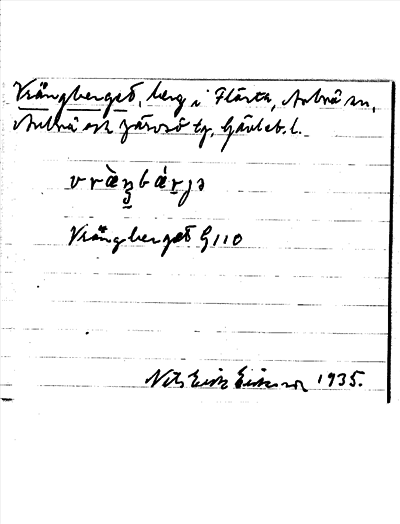 Vrångberget, berg i Flästa, Arbrå sn,
Arbrå och Järvsö tg, Gävleb. l.
vràŋbárjə
Vrångberget G110
Nils Erik Eriksson 1935.